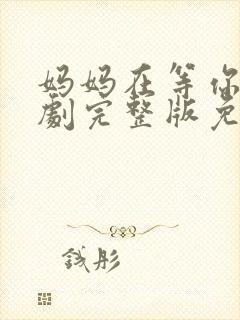 妈妈在等你
劇完整版免
钱彤